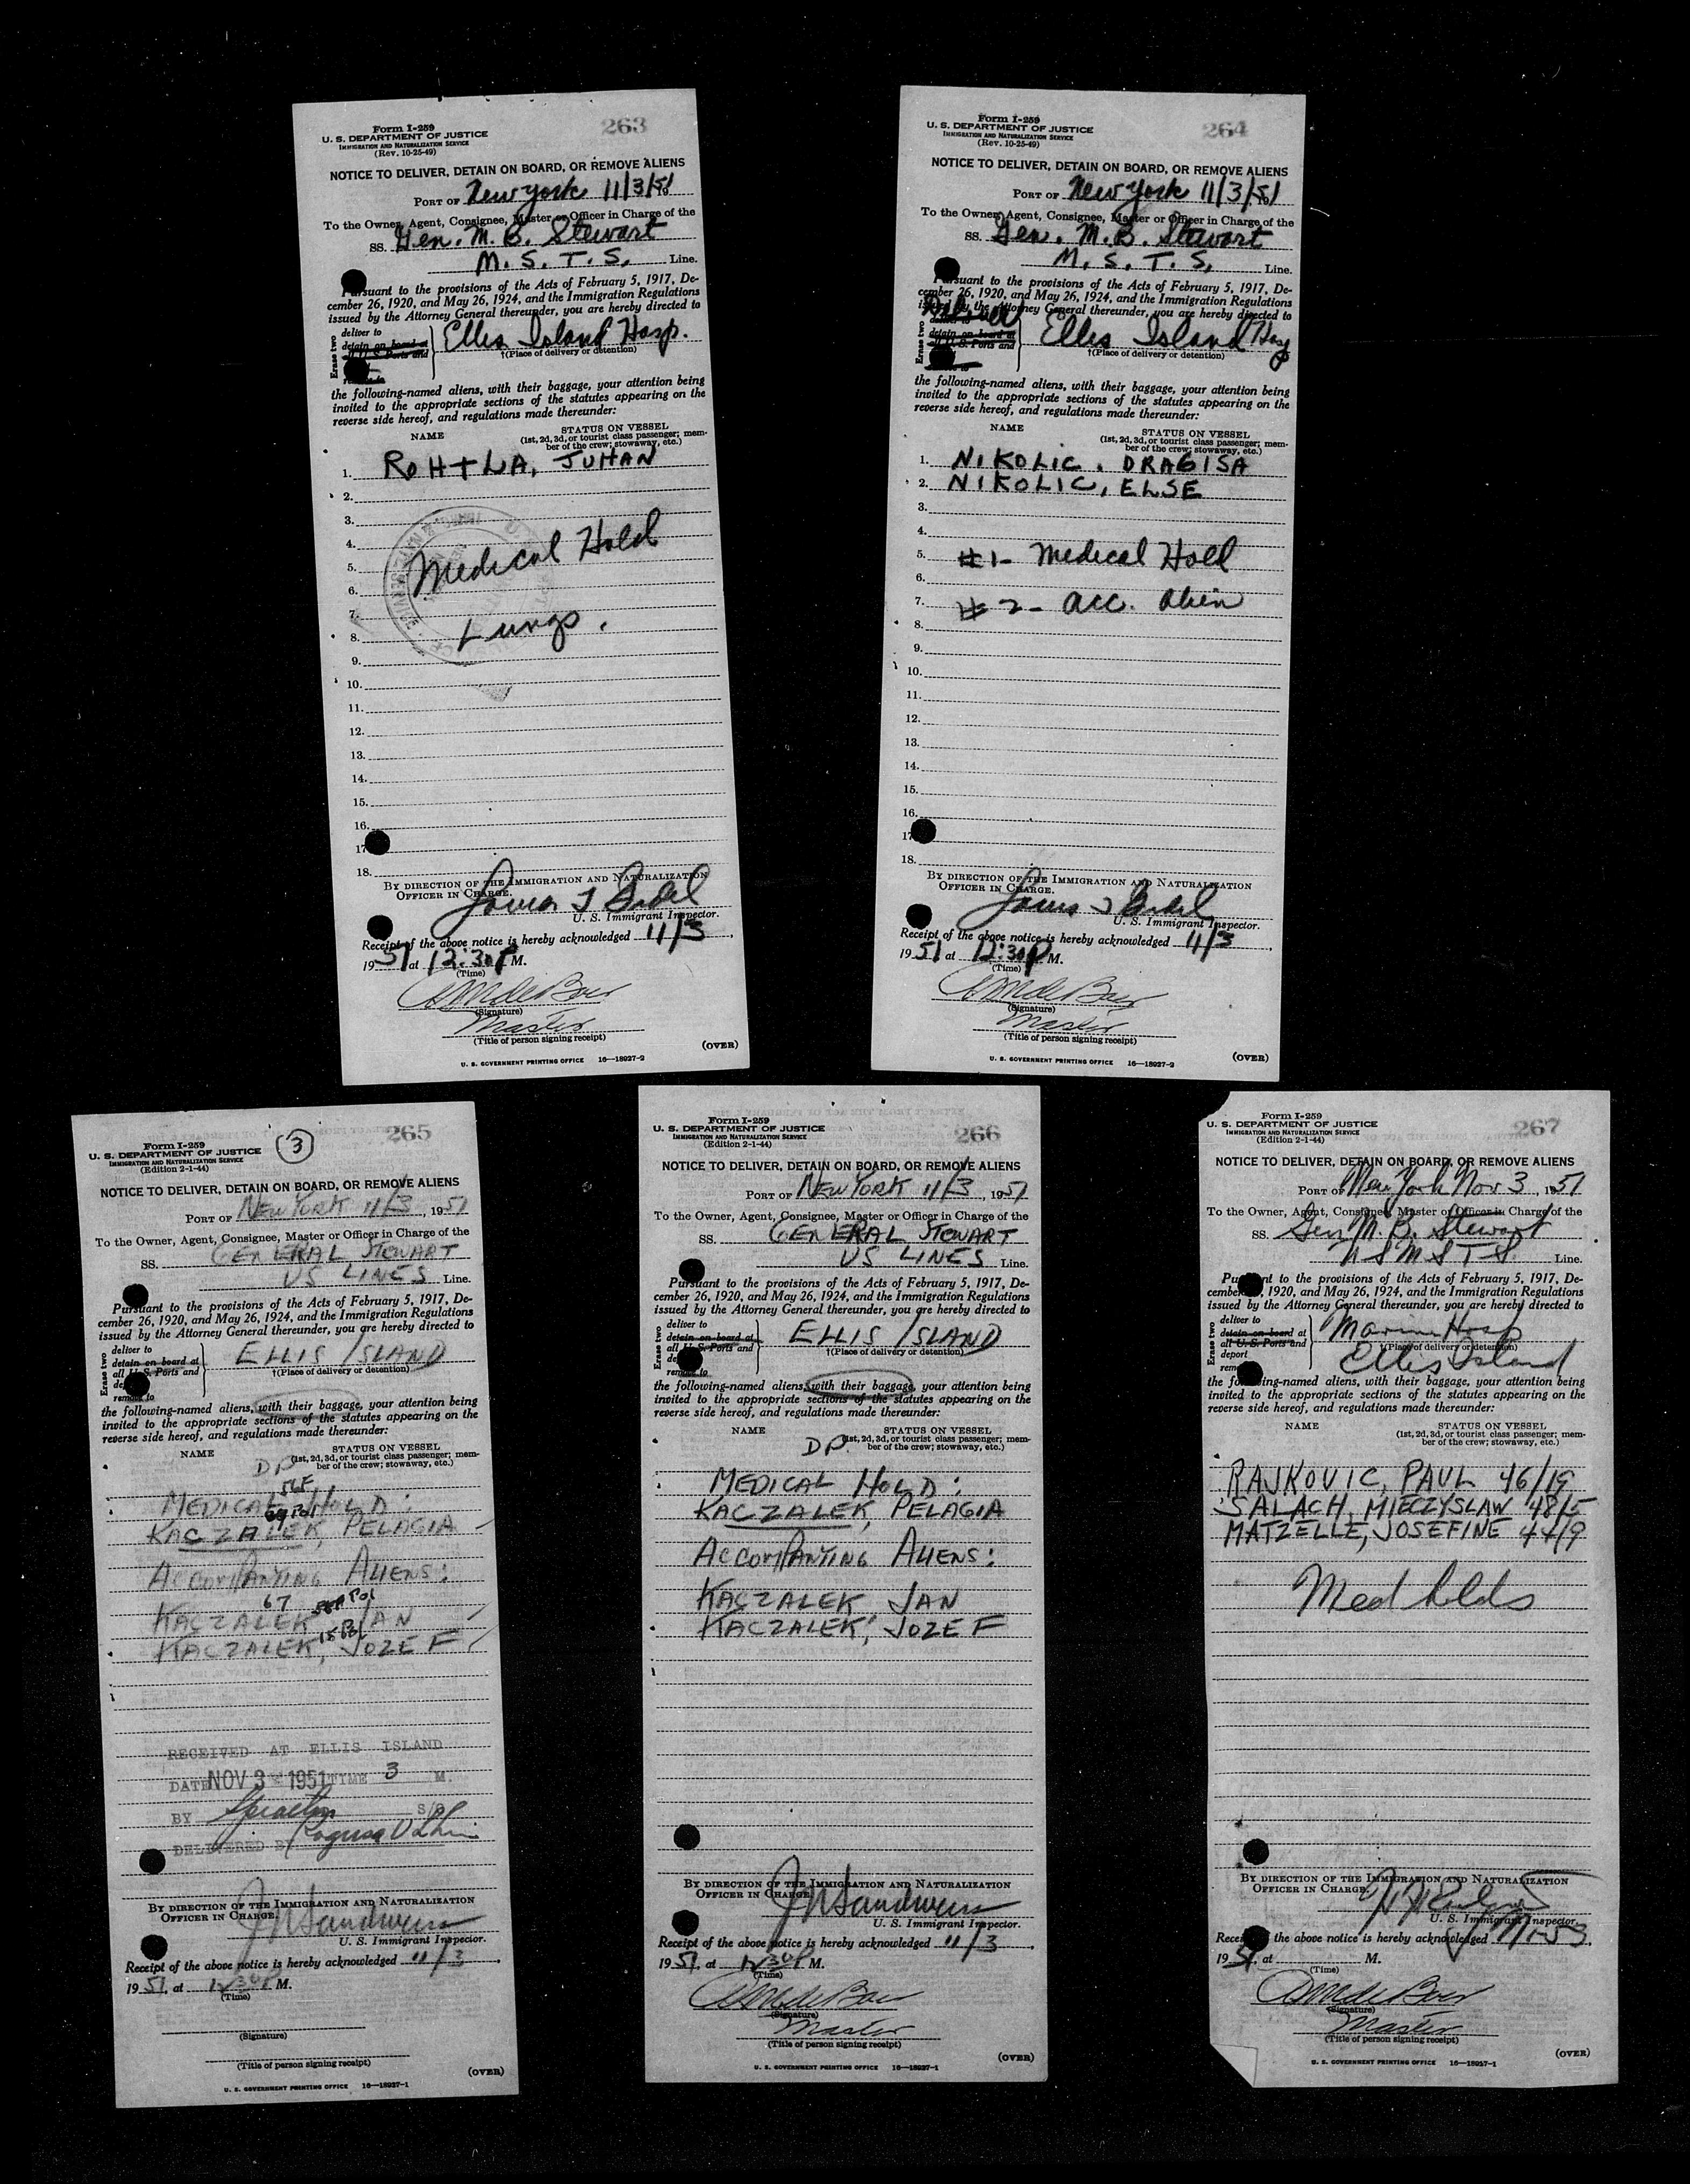 Form I-259
263
U. S. DEPARTMENT OF JUSTICE
IMMIGRATION AND NATURALIZATION SERVICE
(Rev. 10-25-49)
NOTICE TO DELIVER, DETAIN ON BOARD, OR REMOVE ALIENS
PORT OF New York 11/3/51
To the Owner, Agent, Consignee, Master or Officer in Charge of the
SS. Gen. M. B. Stewart
M. S. T. S. Line.
Pursuant to the provisions of the Acts of February 5, 1917, De-
cember 26, 1920, and May 26, 1924, and the Immigration Regulations
issued by the Attorney General thereunder, you are hereby directed to
Erase two
deliver to
detain on board at
U. S. Ports and
Ellis Island Hosp.
†(Place of delivery or detention)
the following-named aliens, with their baggage, your attention being
invited to the appropriate sections of the statutes appearing on the
reverse side hereof, and regulations made thereunder:
NAME
STATUS ON VESSEL
(1st, 2d, 3d, or tourist class passenger; mem-
ber of the crew; stowaway, etc.)
1. ROHTLA, JUHAN
2.
3.
4.
5. Medical Hold
6.
7.
8. Lungs.
9.
10.
11.
12.
13.
14.
15.
16.
17
18.
BY DIRECTION OF THE IMMIGRATION AND NATURALIZATION
OFFICER IN CHARGE.
U. S. Immigrant Inspector.
Receipt of the above notice is hereby acknowledged 11/3,
1951 at 12:30 P M.
(Time)
(Signature)
Master
(Title of person signing receipt)
(OVER)
U. S. GOVERNMENT PRINTING OFFICE 16—18927-2
Form I-259
264
U. S. DEPARTMENT OF JUSTICE
IMMIGRATION AND NATURALIZATION SERVICE
(Rev. 10-25-49)
NOTICE TO DELIVER, DETAIN ON BOARD, OR REMOVE ALIENS
PORT OF New York 11/3/51
To the Owner, Agent, Consignee, Master or Officer in Charge of the
SS. Gen. M. B. Stewart
M. S. T. S. Line.
Pursuant to the provisions of the Acts of February 5, 1917, De-
cember 26, 1920, and May 26, 1924, and the Immigration Regulations
issued by the Attorney General thereunder, you are hereby directed to
Erase two
Deliver
detain on board at
U. S. Ports and
Ellis Island Hosp
†(Place of delivery or detention)
the following-named aliens, with their baggage, your attention being
invited to the appropriate sections of the statutes appearing on the
reverse side hereof, and regulations made thereunder:
NAME
STATUS ON VESSEL
(1st, 2d, 3d, or tourist class passenger; mem-
ber of the crew; stowaway, etc.)
1. NIKOLIC, DRAGISA
2. NIKOLIC, ELSE
3.
4.
5. #1- Medical Hold
6.
7. #2- Acc. Alien
8.
9.
10.
11.
12.
13.
14.
15.
16.
17
18.
BY DIRECTION OF THE IMMIGRATION AND NATURALIZATION
OFFICER IN CHARGE.
U. S. Immigrant Inspector.
Receipt of the above notice is hereby acknowledged 11/3,
1951 at 12:30 P M.
(Time)
(Signature)
Master
(Title of person signing receipt)
(OVER)
U. S. GOVERNMENT PRINTING OFFICE 16—18927-2
Form I-259
3
265
U. S. DEPARTMENT OF JUSTICE
IMMIGRATION AND NATURALIZATION SERVICE
(Edition 2-1-44)
NOTICE TO DELIVER, DETAIN ON BOARD, OR REMOVE ALIENS
PORT OF NEW YORK 11/3, 1951
To the Owner, Agent, Consignee, Master or Officer in Charge of the
SS. GENERAL STEWART
US LINES Line.
Pursuant to the provisions of the Acts of February 5, 1917, De-
cember 26, 1920, and May 26, 1924, and the Immigration Regulations
issued by the Attorney General thereunder, you are hereby directed to
Erase two
deliver to
detain on board at
all U. S. Ports and
remove to
ELLIS ISLAND
†(Place of delivery or detention)
the following-named aliens, with their baggage, your attention being
invited to the appropriate sections of the statutes appearing on the
reverse side hereof, and regulations made thereunder:
NAME
STATUS ON VESSEL
DP (1st, 2d, 3d, or tourist class passenger; mem-
ber of the crew; stowaway, etc.)
MEDICAL HOLD:
KACZALEK, PELAGIA
ACCOMPANYING ALIENS:
67
KACZALEK JAN
15 Pol
KACZALEK, JOZEF
RECEIVED AT ELLIS ISLAND
DATE NOV 3 - 1951 TIME 3 M.
BY
DELIVERED BY
BY DIRECTION OF THE IMMIGRATION AND NATURALIZATION
OFFICER IN CHARGE.
U. S. Immigrant Inspector.
Receipt of the above notice is hereby acknowledged 11/3,
1951, at 1230 P M.
(Time)
(Signature)
(Title of person signing receipt)
(OVER)
U. S. GOVERNMENT PRINTING OFFICE 16—18927-1
Form I-259
266
U. S. DEPARTMENT OF JUSTICE
IMMIGRATION AND NATURALIZATION SERVICE
(Edition 2-1-44)
NOTICE TO DELIVER, DETAIN ON BOARD, OR REMOVE ALIENS
PORT OF NEW YORK 11/3, 1951
To the Owner, Agent, Consignee, Master or Officer in Charge of the
SS. GENERAL STEWART
US LINES Line.
Pursuant to the provisions of the Acts of February 5, 1917, De-
cember 26, 1920, and May 26, 1924, and the Immigration Regulations
issued by the Attorney General thereunder, you are hereby directed to
Erase two
deliver to
detain on board at
all U. S. Ports and
remove to
ELLIS ISLAND
†(Place of delivery or detention)
the following-named aliens, with their baggage, your attention being
invited to the appropriate sections of the statutes appearing on the
reverse side hereof, and regulations made thereunder:
NAME
STATUS ON VESSEL
DP. (1st, 2d, 3d, or tourist class passenger; mem-
ber of the crew; stowaway, etc.)
MEDICAL HOLD:
KACZALEK, PELAGIA
ACCOMPANYING ALIENS:
KACZALEK JAN
KACZALEK, JOZEF
BY DIRECTION OF THE IMMIGRATION AND NATURALIZATION
OFFICER IN CHARGE.
U. S. Immigrant Inspector.
Receipt of the above notice is hereby acknowledged 11/3,
1951, at 1230 P M.
(Time)
(Signature)
Master
(Title of person signing receipt)
(OVER)
U. S. GOVERNMENT PRINTING OFFICE 16—18927-1
Form I-259
267
U. S. DEPARTMENT OF JUSTICE
IMMIGRATION AND NATURALIZATION SERVICE
(Edition 2-1-44)
NOTICE TO DELIVER, DETAIN ON BOARD, OR REMOVE ALIENS
PORT OF New York Nov 3, 1951
To the Owner, Agent, Consignee, Master or Officer in Charge of the
SS. Gen M. B. Stewart
U S M S T S. Line.
Pursuant to the provisions of the Acts of February 5, 1917, De-
cember 26, 1920, and May 26, 1924, and the Immigration Regulations
issued by the Attorney General thereunder, you are hereby directed to
Erase two
deliver to
detain on board at
all U. S. Ports and
deport
Marine Hosp
†(Place of delivery or detention)
Ellis Island
the following-named aliens, with their baggage, your attention being
invited to the appropriate sections of the statutes appearing on the
reverse side hereof, and regulations made thereunder:
NAME
STATUS ON VESSEL
(1st, 2d, 3d, or tourist class passenger; mem-
ber of the crew; stowaway, etc.)
RAJKOVIC, PAUL 46/19
SALACH, MIECZYSLAW 48/5
MATZELLE, JOSEFINE 44/9
Med holds
BY DIRECTION OF THE IMMIGRATION AND NATURALIZATION
OFFICER IN CHARGE.
U. S. Immigrant Inspector.
Receipt of the above notice is hereby acknowledged
1951, at M.
(Time)
(Signature)
Master
(Title of person signing receipt)
(OVER)
U. S. GOVERNMENT PRINTING OFFICE 16—18927-1